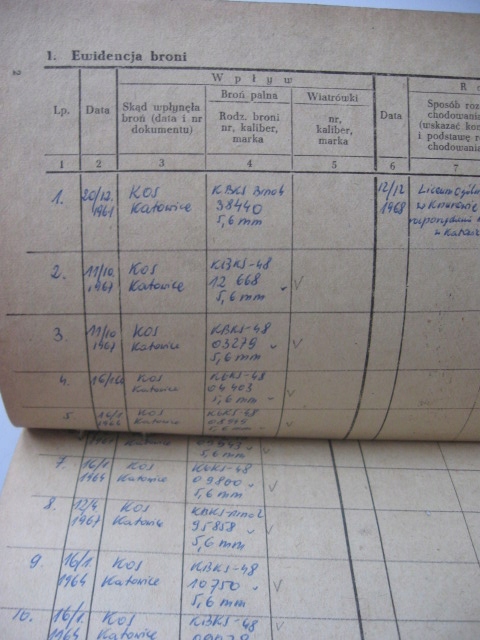 1. Ewidencja broni
Wpływ
Lp.
Data
Skąd wpłynęła broń (data i nr dokumentu)
Broń palna
Rodz. broni nr, kaliber, marka
Wiatrówki
nr, kaliber, marka
Data
Sposób roz
chodowania
(wskazać kon
i podstawę r
chodowania
1 2 3 4 5 6 7
1. 20/12. 1961 KOS Katowice KBKS Brno4 38440 5,6 mm 12/12 1968 Liceum Ogóln
w Knurowie
2. 11/10. 1967 KOS Katowice KBKS-48 12 668 5,6 mm v
3. 11/10 1967 KOS Katowice KBKS-48 03279 5,6 mm v
4. KOS Katowice KBKS-48 04403 5,6 mm v
5. KOS Katowice KBKS-48 5,6 mm v
Katowice 5,6 mm
7. 16/1. 1964 KOS Katowice KBKS-48 09800 5,6 mm v
8. 12/4. 1967 KOS Katowice 95858 5,6 mm
9. 16/1. 1964 KOS Katowice KBKS-48 10750 5,6 mm v
10. 16/1. 1964 KOS Katowice KBKS-48